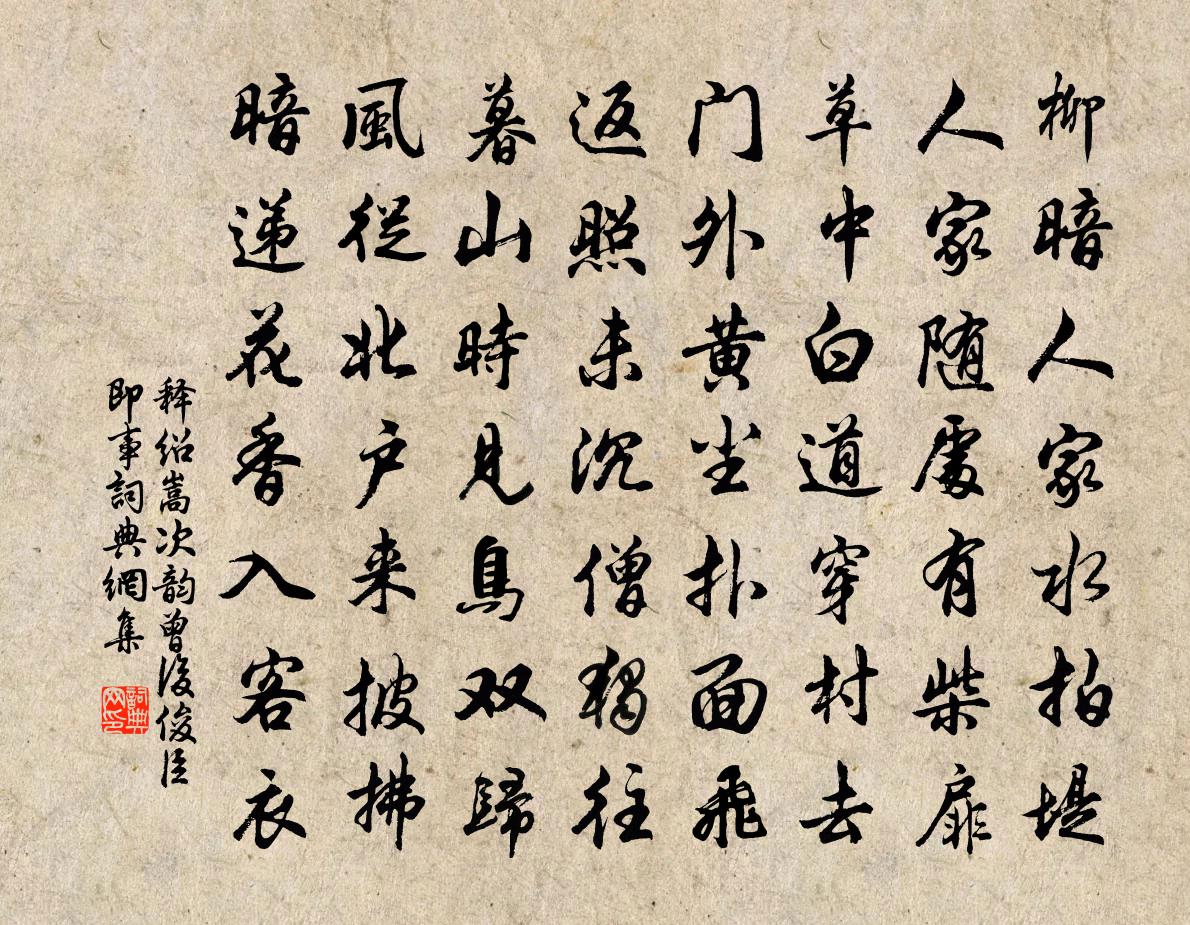 柳暗人家水拍堤
人家随處有柴扉
草中白道穿村去
门外黄尘扑面飛
返照未沉僧獨往
暮山時見鳥双歸
風從北户来披拂
暗递花香入客衣
释绍嵩次韵曾浚俊臣
即事詞典網集
詞典网印